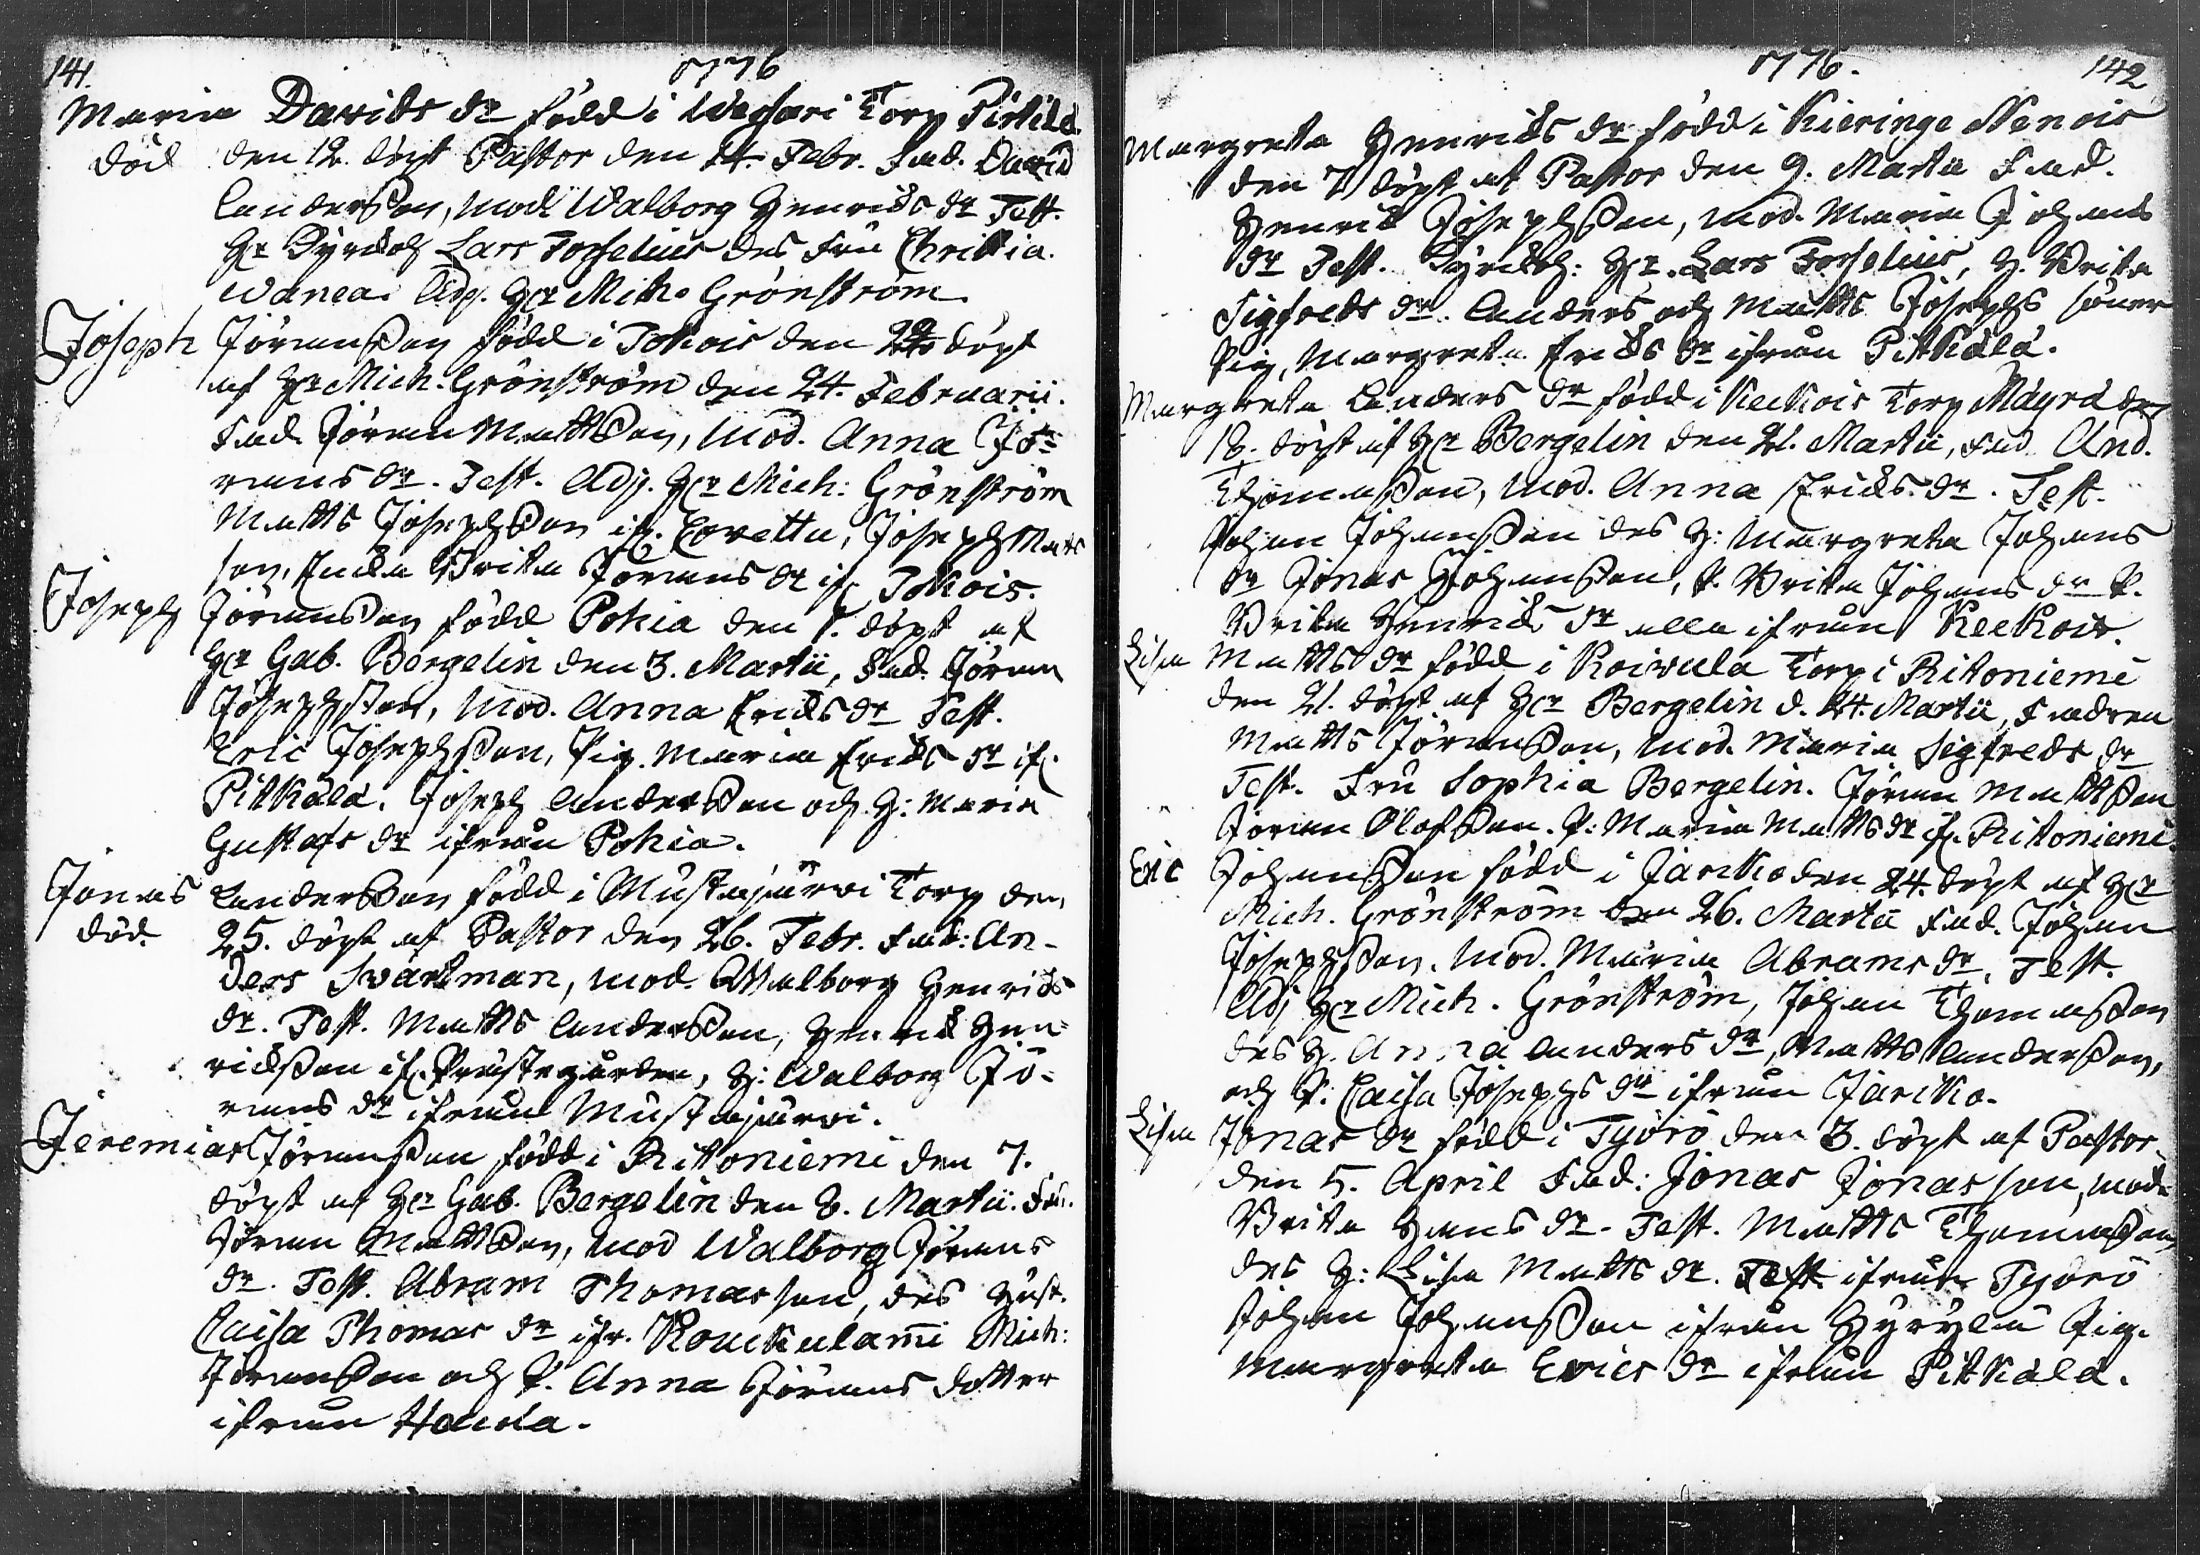 141.
1776
Maria Davids dr född i Wessari Torp Pirkilä
död den 12. döpt Pastor den 14. Febr. Fad. David
Andersson, mod. Walborg Henrics dr Test.
Hr Lars Forselius des Fru Christia.
Wanæa. Adj. Hr Mich. Grönström.
Joseph Jöransson född i Tokois den 22 döpt
af Hr Mich. Grönström den 24. Februarii.
Fad. Jöran Mattsson, Mod. Anna Jö-
rans dr. Test. Adj. Hr Mich: Grönström
Matts Josephsson if. Lovettu, Joseph Mats
son, Enka Brita Jörans dr if. Tokois.
Joseph Jöransson född Pohia den 1. döpt af
Hr Gab. Bergelin den 3. Martii, Fad. Jöran
Josephsson, Mod. Anna Erics dr Test.
Eric Josephsson, Pig. Maria Erics dr if.
Pitkälä. Joseph Andersson och H: Maria
Gustafs dr ifrån Pohia.
Jonas Andersson född i Mustajärvi Torp den
död. 25. döpt af Pastor den 26. Febr. Fad: An-
ders Svartman, mod. Walborg Henrics
dr. Test. Matts Andersson, Henric Hen-
ricsson if. Prästegården, H: Walborg Jö-
rans dr ifrån Mustajärvi.
Jeremias Jöransson född i Ritoniemi den 7.
döpt af Hr Gab. Bergelin den 8. Martii. Fad.
Jöran Mattsson, mod Walborg Jörans
dr. Test. Abram Thomasson, des Hust.
Caisa Thomas dr ifr. Rouckulami Mich:
Jöransson och P. Anna Jörans dotter
ifrån Haula.
1776.
142
Margreta Henrics dr född i Kieringe Nenois
den 7 döpt af Pastor den 9. Martii Fad.
Henric Josephsson, mod. Maria Johans
dr Test. Hr. Lars Forselius, H. Brita
Sigfreds dr. Anders och Matts Josephs söner
Pig. Margreta Erics dr ifrån Pitkälä.
Margreta Anders dr född i Keckois Torp Mäyrä den
18. döpt af Hr Bergelin den 21. Martii, Fad And.
Thomasson, Mod. Anna Erics dr. Test.
Johan Johansson des H: Margreta Johans
dr Jonas Johansson, P. Brita Johans dr P.
Brita Henrics dr alla ifrån Keckois.
Lisa Matts dr född i Koivula Torp i Ritoniemi
den 21. döpt af Hr Bergelin d. 24. Martii, Fadren
Matts Jöransson, Mod. Maria Sigfreds dr
Test. Fru Sophia Bergelin. Jöran Mattsson
Jöran Olofsson. P: Maria Matts dr if. Ritoniemi.
Eric Johansson född i Jarikko den 24. döpt af Hr
Mich. Grönström den 26. Martii Fad. Johan
Josephsson. Mod. Maria Abrams dr. Test.
Adj Hr Mich. Grönström, Johan Thomasson
des H. Anna Anders dr, Matts Andersson,
och P. Caisa Josephs dr ifrån Jarikko.
Lisa Jonas dr född i Työrö den 3. döpt af Pastor
den 5. April Fad: Jonas Jonasson, mod.
Brita Hans dr. Test. Matts Thomasson
des H: Lisa Matts dr. Test ifrån Työrö
Johan Johansson ifrån Hyrylä Pig.
Margreta Erics dr ifrån Pitkälä.